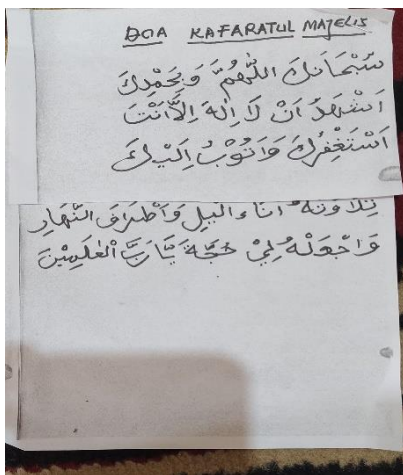 DOA KAFARATUL MAJELIS
سُبْحَانَكَ اللّٰهُمَّ وَبِحَمْدِكَ
اَشْهَدُ اَنْ لَا اِلٰهَ اِلَّا اَنْتَ
اَسْتَغْفِرُكَ وَاَتُوْبُ اِلَيْكَ
تِلَاوَتَهُ اٰنَاءَ الَّيْلِ وَاَطْرَافَ النَّهَارِ
وَاجْعَلْهُ لِيْ حُجَّةً يَّا رَبَّ الْعٰلَمِيْنَ